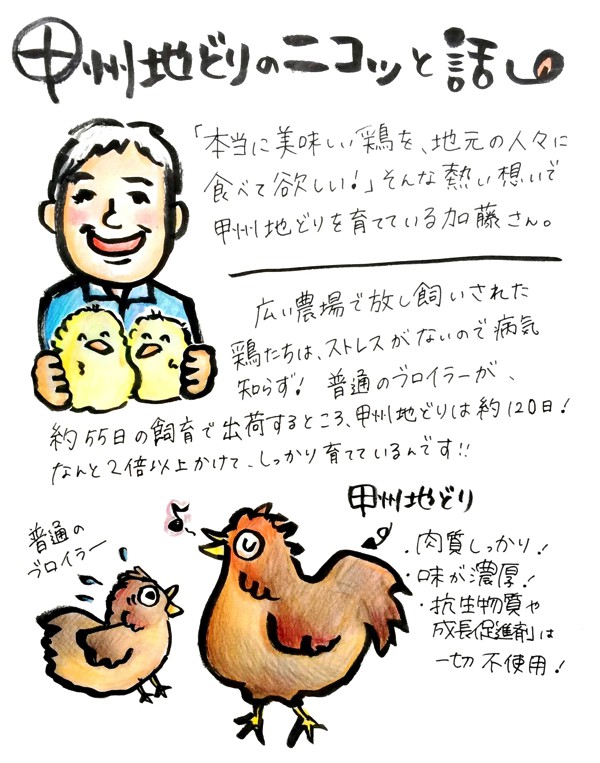 甲州地どりのニコッと話し
「本当に美味しい鶏を、地元の人々に
食べて欲しい!」そんな熱い想いで
甲州地どりを育てている加藤さん。
広い農場で放し飼いされた
鶏たちは、ストレスがないので病気
知らず! 普通のブロイラーが、
約55日の飼育で出荷するところ、甲州地どりは約120日!
なんと2倍以上かけて、しっかり育てているんです!!
普通の
ブロイラー
甲州地どり
・肉質しっかり!
・味が濃厚!
・抗生物質や
成長促進剤は
一切不使用!